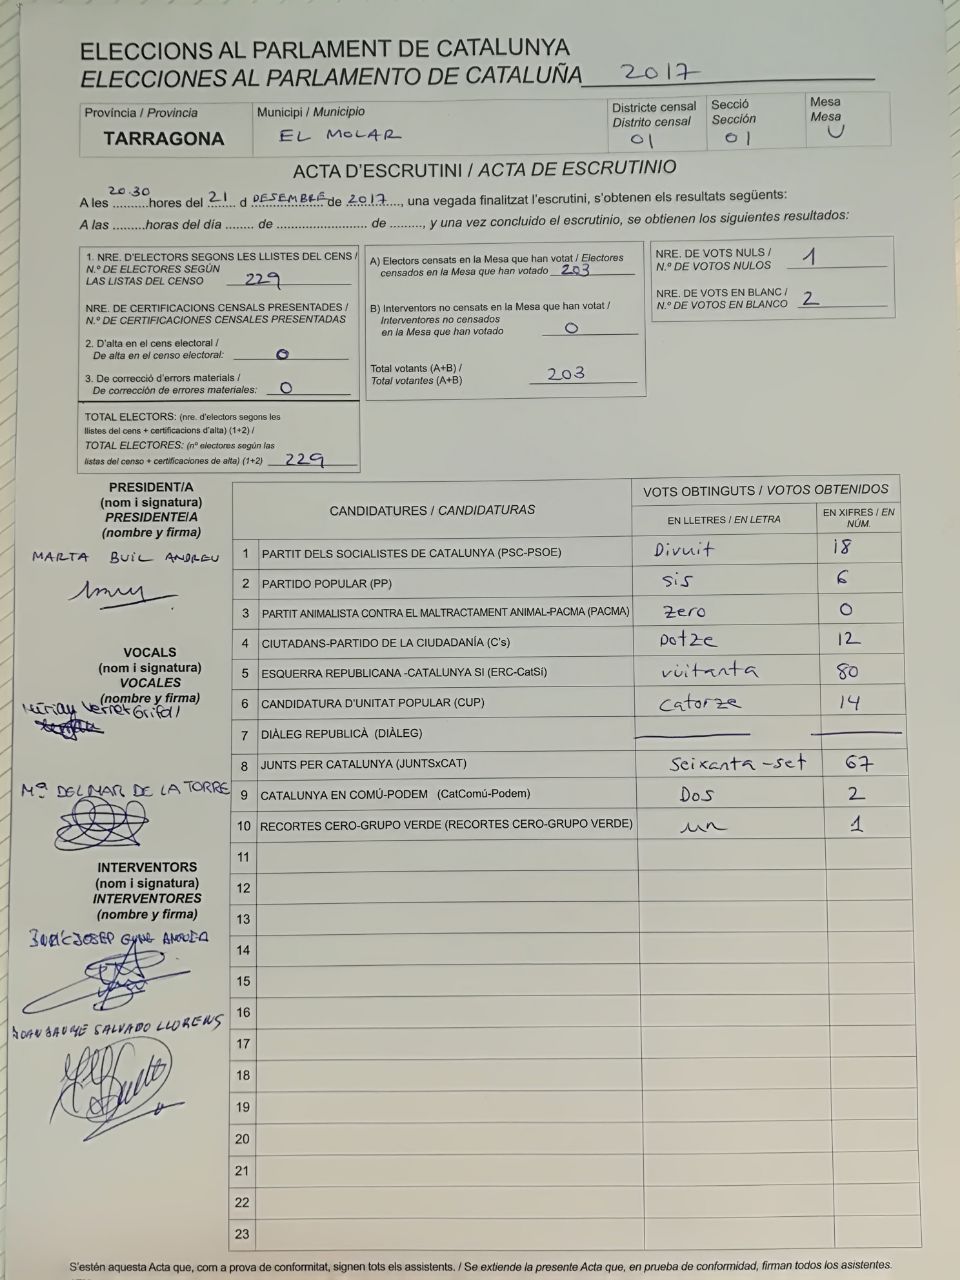 ELECCIONS AL PARLAMENT DE CATALUNYA
ELECCIONES AL PARLAMENTO DE CATALUÑA 2017
Província / Provincia
TARRAGONA
Municipi / Municipio
EL MOLAR
Districte censal
Distrito censal
01
Secció
Sección
01
Mesa
Mesa
U
ACTA D'ESCRUTINI / ACTA DE ESCRUTINIO
A les 20.30 hores del 21 d DESEMBRE de 2017, una vegada finalitzat l'escrutini, s'obtenen els resultats següents:
A las .........horas del día ........ de ......................... de ........., y una vez concluido el escrutinio, se obtienen los siguientes resultados:
1. NRE. D'ELECTORS SEGONS LES LLISTES DEL CENS /
N.º DE ELECTORES SEGÚN
LAS LISTAS DEL CENSO 229
NRE. DE CERTIFICACIONS CENSALS PRESENTADES /
N.º DE CERTIFICACIONES CENSALES PRESENTADAS
2. D'alta en el cens electoral /
De alta en el censo electoral: 0
3. De correcció d'errors materials /
De corrección de errores materiales: 0
TOTAL ELECTORS: (nre. d'electors segons les
llistes del cens + certificacions d'alta) (1+2) /
TOTAL ELECTORES: (nº electores según las
listas del censo + certificaciones de alta) (1+2) 229
A) Electors censats en la Mesa que han votat / Electores
censados en la Mesa que han votado 203
B) Interventors no censats en la Mesa que han votat /
Interventores no censados
en la Mesa que han votado 0
Total votants (A+B) /
Total votantes (A+B) 203
NRE. DE VOTS NULS /
N.º DE VOTOS NULOS 1
NRE. DE VOTS EN BLANC /
N.º DE VOTOS EN BLANCO 2
PRESIDENT/A
(nom i signatura)
PRESIDENTE/A
(nombre y firma)
MARTA BUIL ANDREU
VOCALS
(nom i signatura)
VOCALES
(nombre y firma)
Vernet
Mª DEL MAR DE LA TORRE
INTERVENTORS
(nom i signatura)
INTERVENTORES
(nombre y firma)
JOSEP
SALVADO LLORENS
CANDIDATURES / CANDIDATURAS
VOTS OBTINGUTS / VOTOS OBTENIDOS
EN LLETRES / EN LETRA
EN XIFRES / EN NÚM.
1 PARTIT DELS SOCIALISTES DE CATALUNYA (PSC-PSOE) Divuit 18
2 PARTIDO POPULAR (PP) sis 6
3 PARTIT ANIMALISTA CONTRA EL MALTRACTAMENT ANIMAL-PACMA (PACMA) zero 0
4 CIUTADANS-PARTIDO DE LA CIUDADANÍA (C's) Dotze 12
5 ESQUERRA REPUBLICANA -CATALUNYA SI (ERC-CatSí) vuitanta 80
6 CANDIDATURA D'UNITAT POPULAR (CUP) catorze 14
7 DIÀLEG REPUBLICÀ (DIÀLEG)
8 JUNTS PER CATALUNYA (JUNTSxCAT) Seixanta-set 67
9 CATALUNYA EN COMÚ-PODEM (CatComú-Podem) Dos 2
10 RECORTES CERO-GRUPO VERDE (RECORTES CERO-GRUPO VERDE) un 1
11
12
13
14
15
16
17
18
19
20
21
22
23
S'estén aquesta Acta que, com a prova de conformitat, signen tots els assistents. / Se extiende la presente Acta que, en prueba de conformidad, firman todos los asistentes.